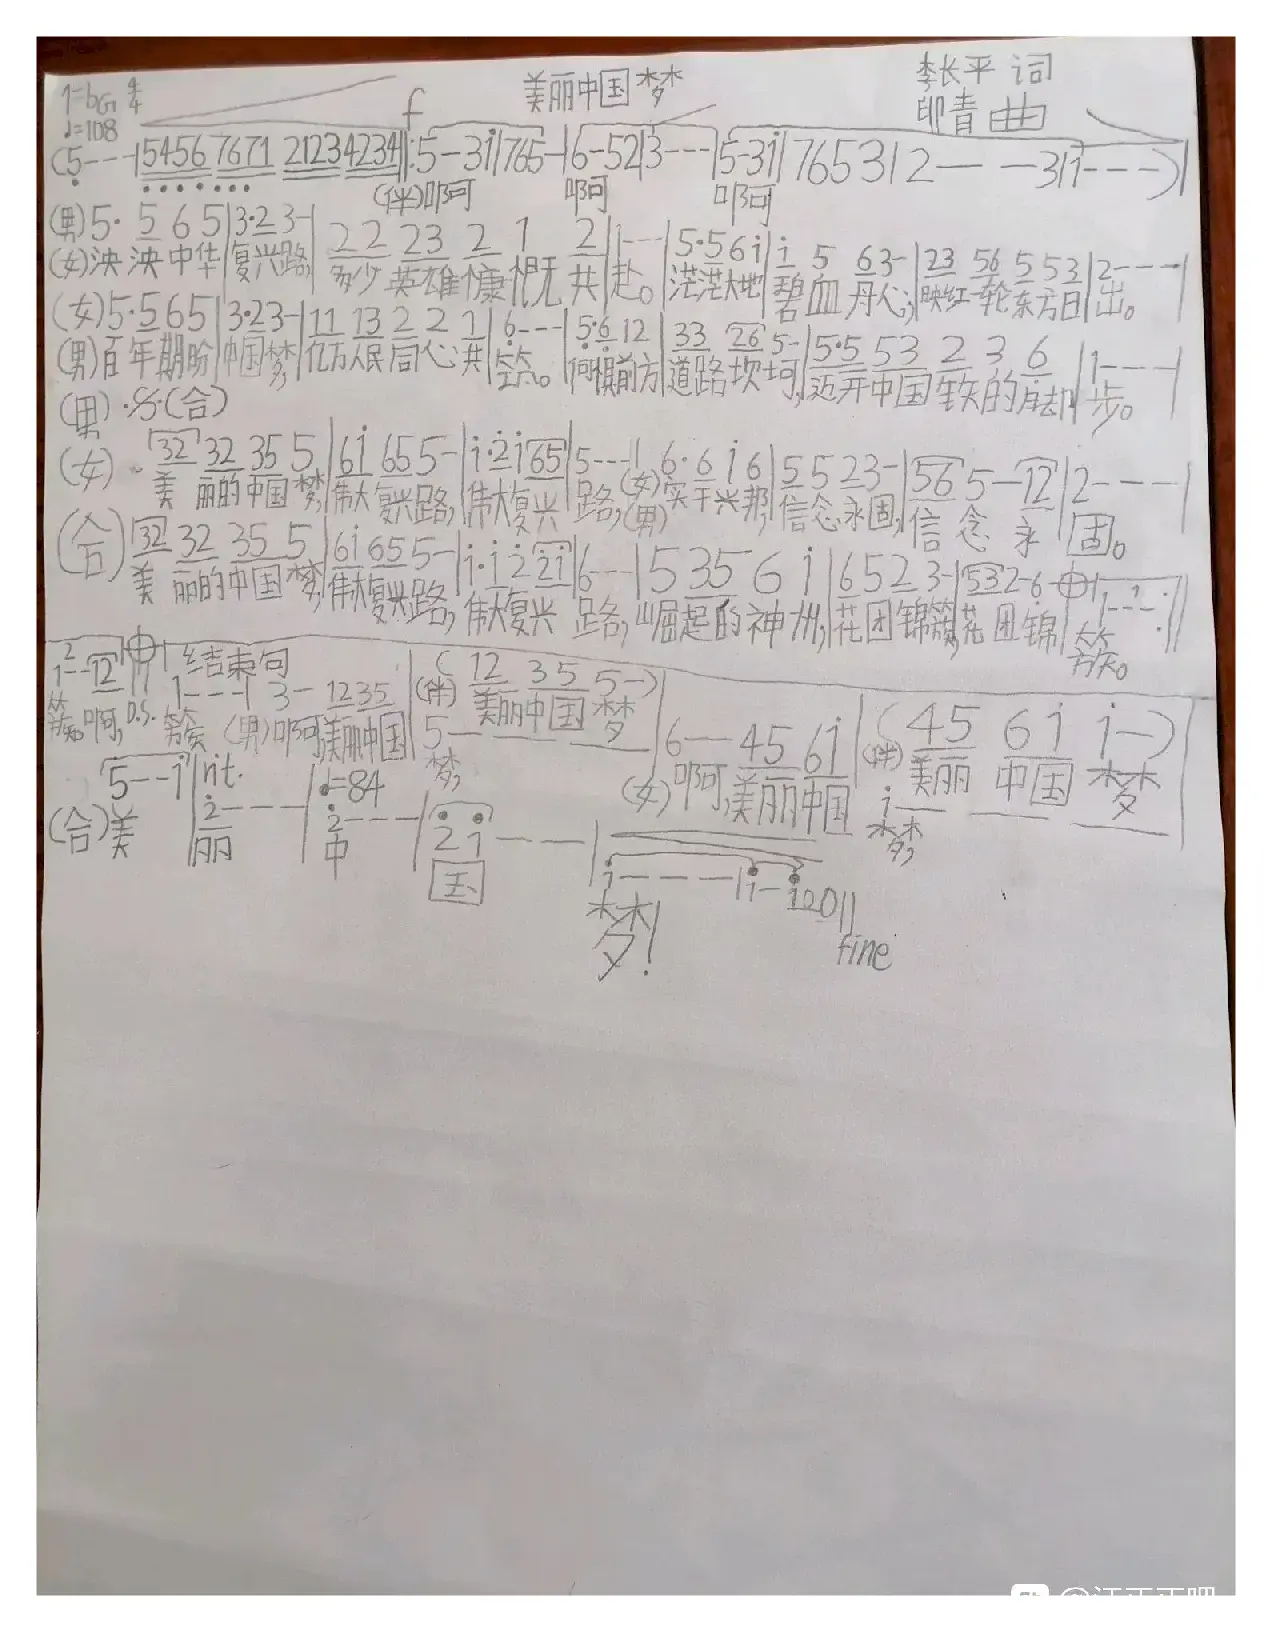 美丽中国梦
李长平 词
1=bG 4/4
♩=108
印青 曲
f
(5---|5456 7671 2123 4234‖:5-3i|765-|6-52|3---|5-3i|7653|2---3|1---)|
(伴)啊 啊 啊
(男)5· 5 6 5|3·2 3-|2 2 23 2 1 2|1---|5·5 6 i|i 5 6 3-|23 56 5 53|2---|
(女)泱 泱 中华|复兴路,|多少 英雄 慷 慨 共|赴。|茫茫大地|碧 血 丹心,|映红一轮东方日|出。
(女)5·5 6 5|3·2 3-|11 13 2 2 1|6---|5·6 12|33 26 5-|5·5 53 2 3 6|1---|
(男)百年期盼|中国梦,|亿万人民同心共|筑。|何惧前方|道路坎坷,|迈开中国铁的脚|步。
(男)·S·(合)
(女) 32 32 35 5|6i 65 5-|i·2i65|5---|6·6 i 6|5 5 2 3-|56 5-12|2---|
美 丽的中国梦,|伟大复兴路,|伟大复兴|路,(女)(男)实干兴邦,|信念永固,|信 念 永|固。
(合)32 32 35 5|6i 65 5-|i·i 2 2i|6---|5 35 6 i|6 5 2 3-|532-6-|1---:‖
美 丽的中国梦,|伟大复兴路,|伟大复兴|路,|崛起的神州,|花团锦簇,|花 团锦|簇。
2 结束句
1--12‖1---|3- 1235|(伴)(12 35 5-)|6--- 45 6i|(伴)(45 6i i-)
簇。啊, D.S. 簇 (男)啊,美丽中国|美丽中国 梦|(女)啊,美丽中国|美丽 中国 梦
5---
梦,
i---
梦,
5--i|rit. 2---|♩=84 2---|2i---|i---|i-i20‖
(合)美 丽 中 国 梦!
fine